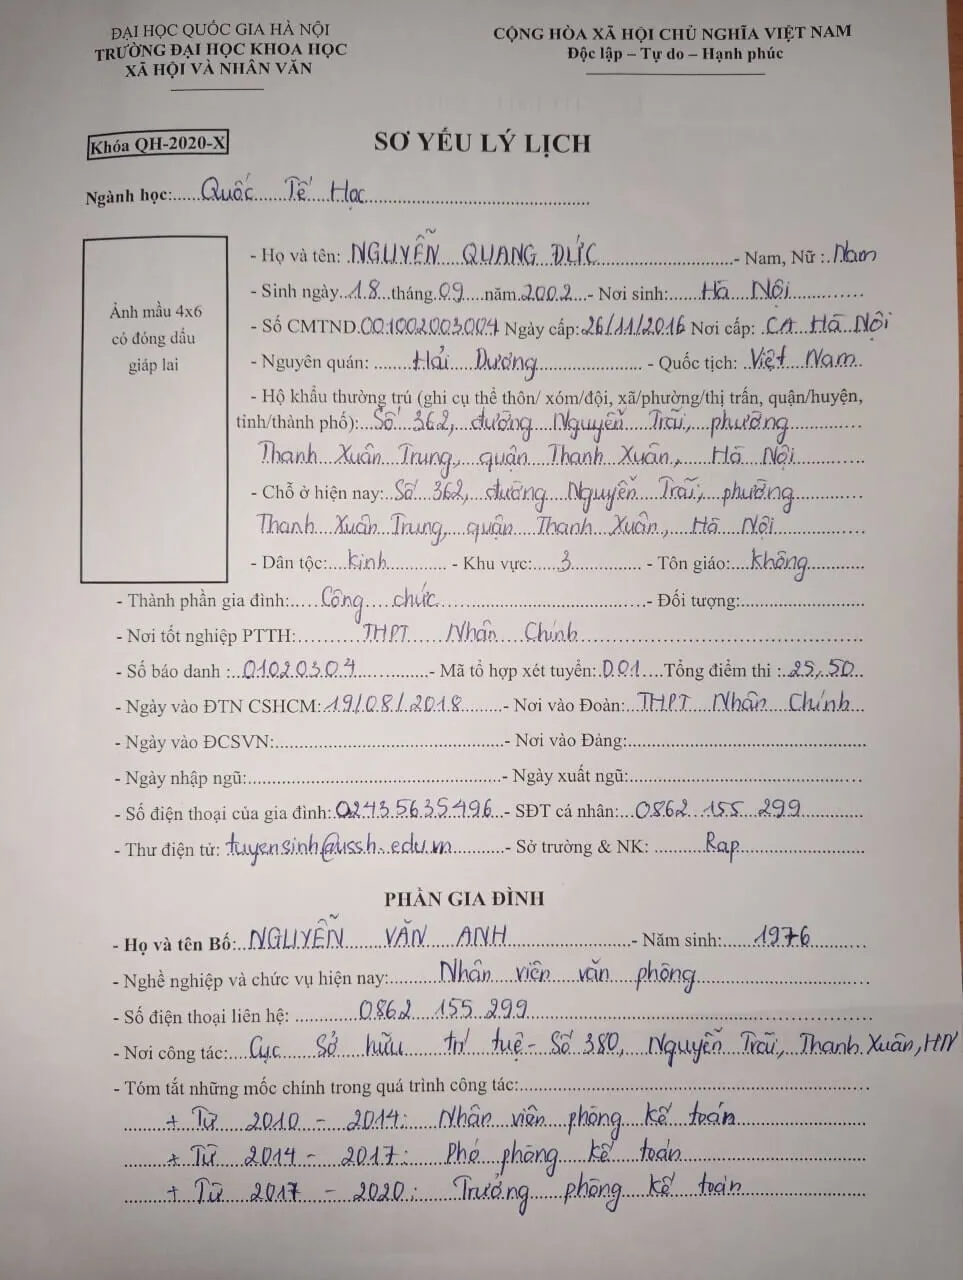 ĐẠI HỌC QUỐC GIA HÀ NỘI
TRƯỜNG ĐẠI HỌC KHOA HỌC
XÃ HỘI VÀ NHÂN VĂN
CỘNG HÒA XÃ HỘI CHỦ NGHĨA VIỆT NAM
Độc lập – Tự do – Hạnh phúc
Khóa QH-2020-X
SƠ YẾU LÝ LỊCH
Ngành học: Quốc Tế Học
Ảnh mầu 4x6
có đóng dấu
giáp lai
- Họ và tên: NGUYỄN QUANG ĐỨC - Nam, Nữ : Nam
- Sinh ngày 18 tháng 09 năm 2002 - Nơi sinh: Hà Nội
- Số CMTND 001002003004 Ngày cấp: 26/11/2016 Nơi cấp: CA Hà Nội
- Nguyên quán: Hải Dương - Quốc tịch: Việt Nam
- Hộ khẩu thường trú (ghi cụ thể thôn/ xóm/đội, xã/phường/thị trấn, quận/huyện,
tỉnh/thành phố): Số 362, đường Nguyễn Trãi, phường
Thanh Xuân Trung, quận Thanh Xuân, Hà Nội
- Chỗ ở hiện nay: Số 362, đường Nguyễn Trãi, phường
Thanh Xuân Trung, quận Thanh Xuân, Hà Nội
- Dân tộc: Kinh - Khu vực: 3 - Tôn giáo: Không
- Thành phần gia đình: Công chức - Đối tượng:
- Nơi tốt nghiệp PTTH: THPT Nhân Chính
- Số báo danh : 01020304 - Mã tổ hợp xét tuyển: D01 Tổng điểm thi : 25,50
- Ngày vào ĐTN CSHCM: 19/08/2018 - Nơi vào Đoàn: THPT Nhân Chính
- Ngày vào ĐCSVN: - Nơi vào Đảng:
- Ngày nhập ngũ: - Ngày xuất ngũ:
- Số điện thoại của gia đình: 02435635496 - SĐT cá nhân: 0862 155 299
- Thư điện tử: tuyensinh@ussh.edu.vn - Sở trường & NK: Rap
PHẦN GIA ĐÌNH
- Họ và tên Bố: NGUYỄN VĂN ANH - Năm sinh: 1976
- Nghề nghiệp và chức vụ hiện nay: Nhân viên văn phòng
- Số điện thoại liên hệ: 0862 155 299
- Nơi công tác: Cục Sở hữu trí tuệ - Số 380, Nguyễn Trãi, Thanh Xuân, HN
- Tóm tắt những mốc chính trong quá trình công tác:
+ Từ 2010 - 2014: Nhân viên phòng kế toán
+ Từ 2014 - 2017: Phó phòng kế toán
+ Từ 2017 - 2020: Trưởng phòng kế toán